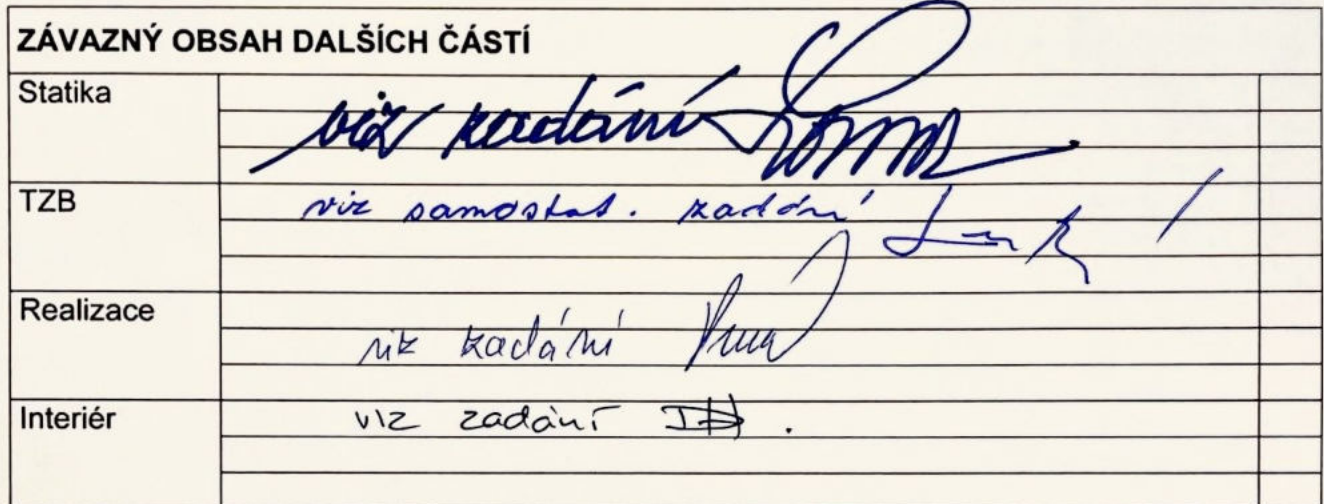 ZÁVAZNÝ OBSAH DALŠÍCH ČÁSTÍ
Statika
viz zadání
TZB
viz samostat. zadání
Realizace
viz zadání
Interiér
viz zadání